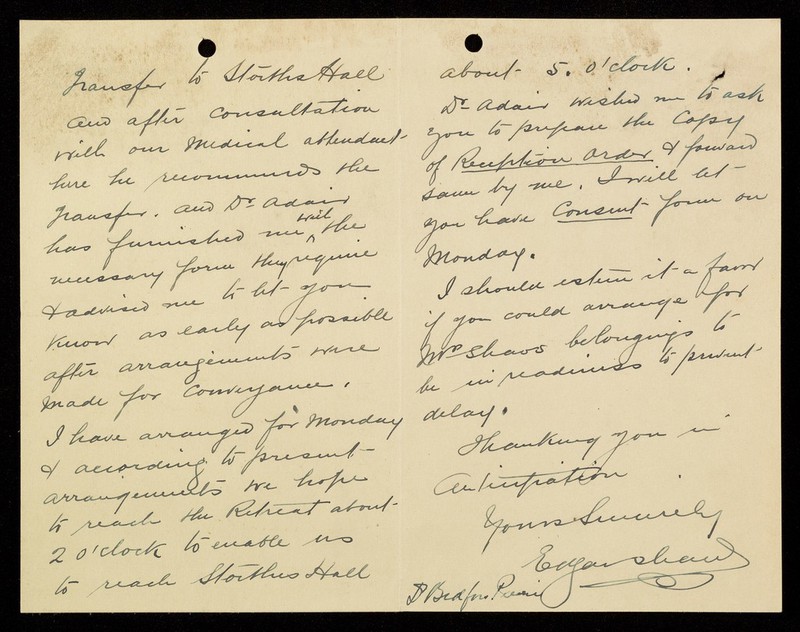 Transfer to Storthes Hall
and after consultation
with our medical attendant
here he recommends the
Transfer. and Dr Adair
has furnished me with the
necessary form they require
& advised me to let you
know as early as possible
after arrangements were
made for Conveyance.
I have arranged for Monday
& according to present
arrangements we hope
to reach the Retreat about
2 o'clock to enable us
to reach Storthes Hall
about 5. o'clock.
Dr Adair wished me to ask
you to prepare the Copy
of Reception Order & forward
same by me. I will let
you have Consent form on
Monday.
I should esteem it a favor
if you could arrange for
Mrs Shaws belongings to
be in readiness to prevent
delay.
Thanking you in
anticipation
Yours Sincerely
Edgar Shaw
Dr Bedford Pierce